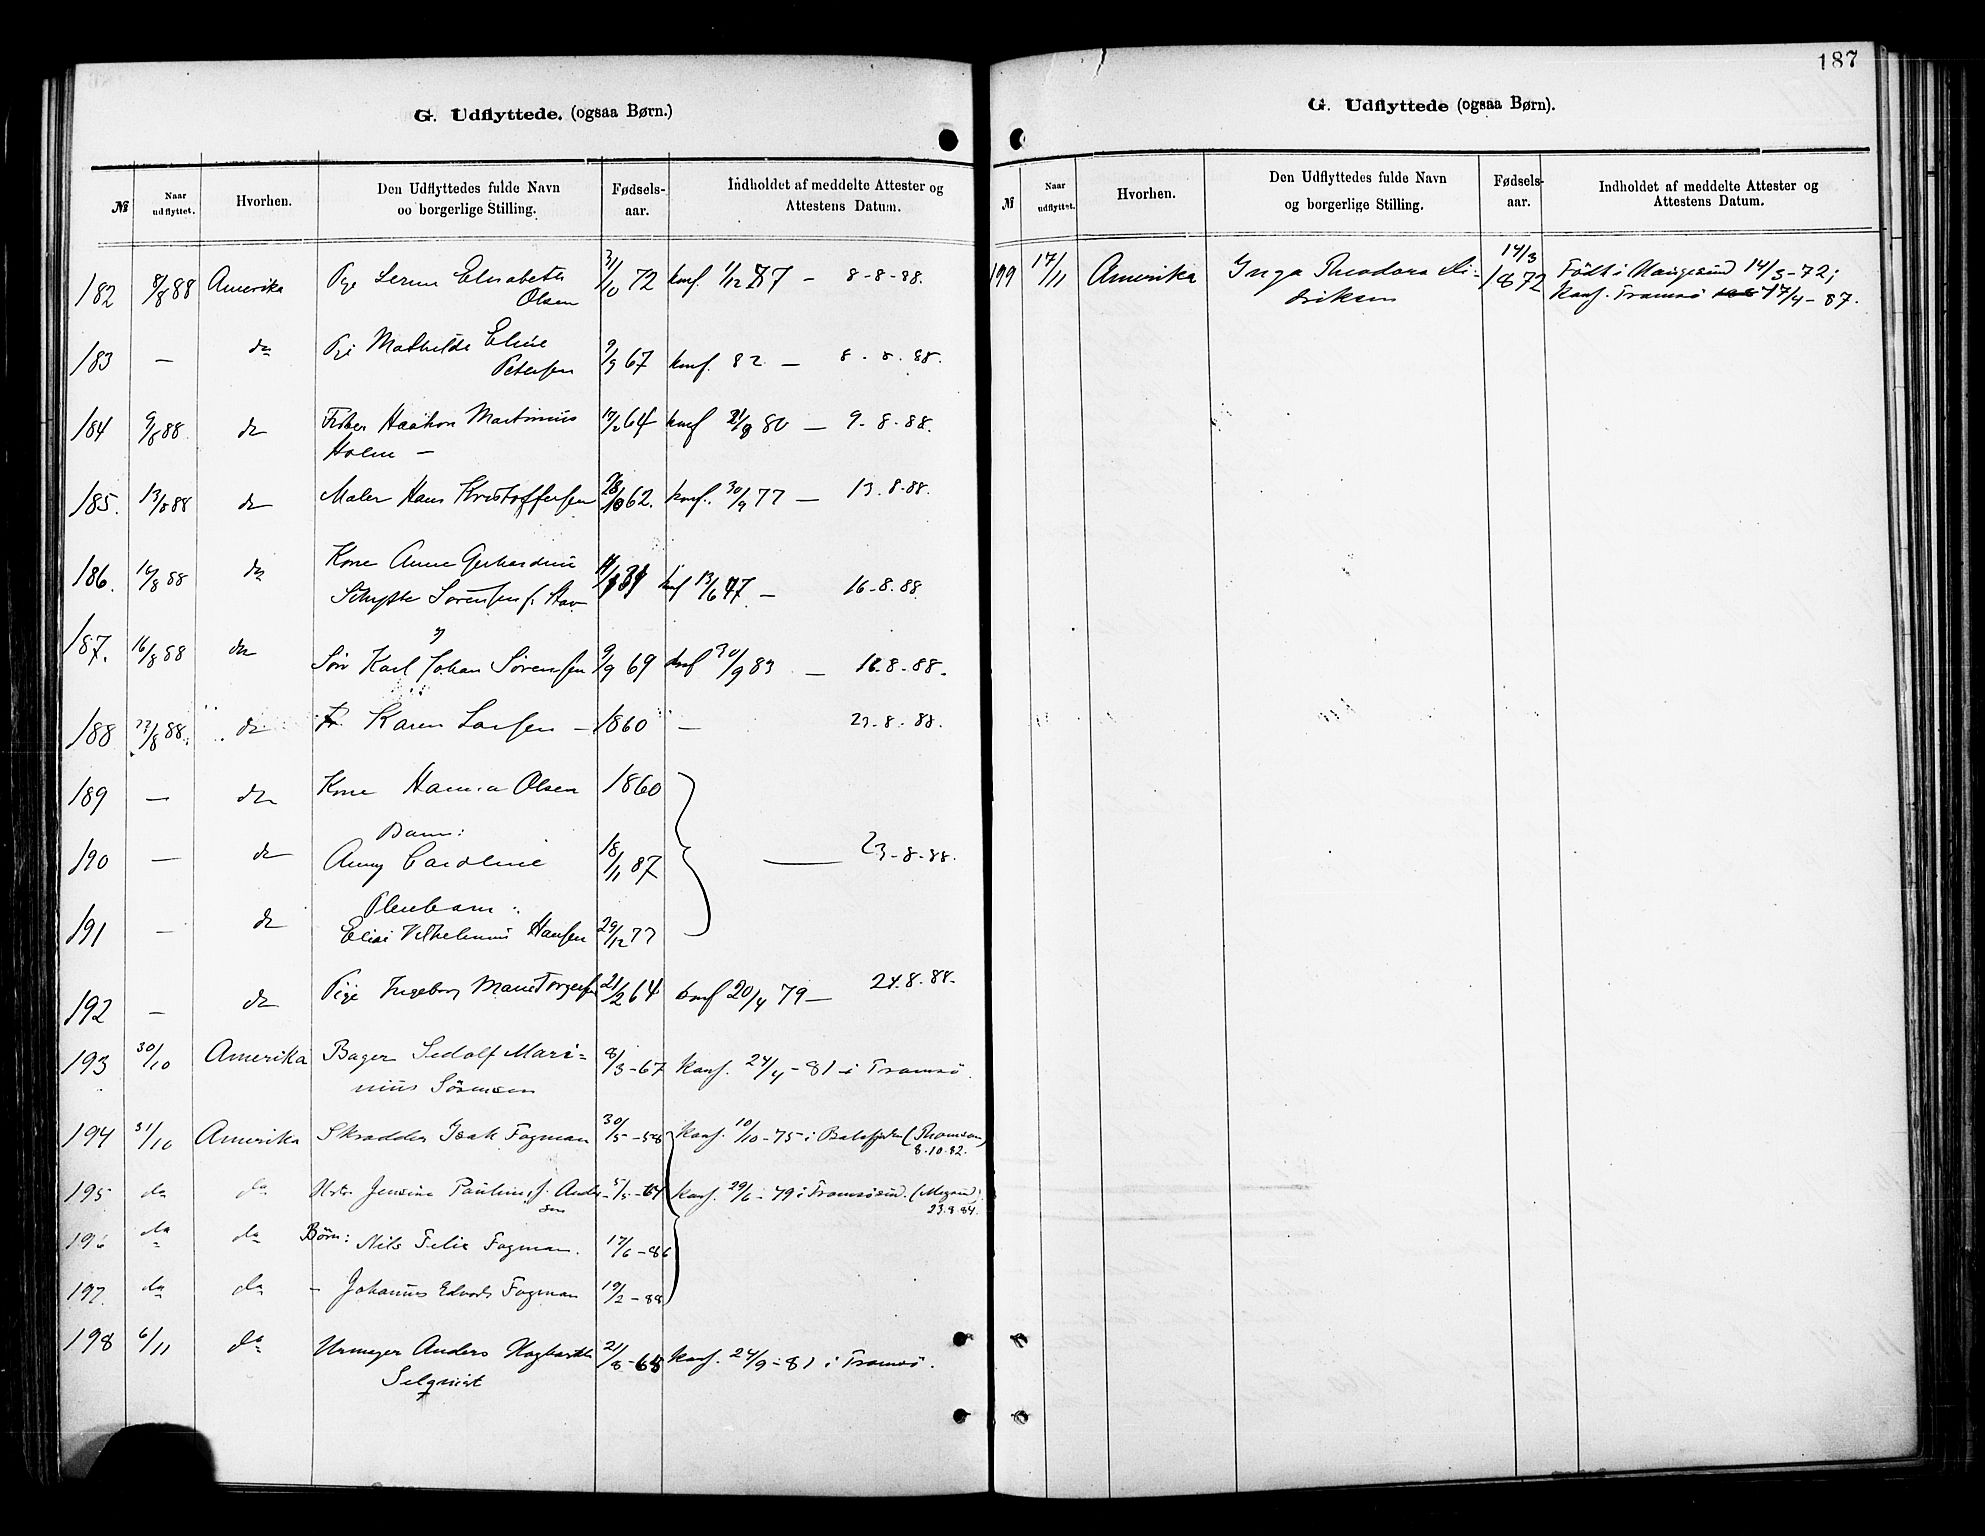 187
G. Udflyttede. (ogsaa Børn.)
№ Naar udflyttet. Hvorhen. Den Udflyttedes fulde Navn oo borgerlige Stilling. Fødsels-aar. Indholdet af meddelte Attester og Attestens Datum.
182 8/8 88 Amerika Pge Elisabeth 31/10 72 konf. 1/12 87 – 8-8-88.
Olsen
183 — do Mathilde Eline 9/9 67 konf. 82 — 8-8-88.
Petersen
184 9/8 88. do Haakon Martinius 17/2 64 konf 80 — 9-8-88.
Holm —
185. 13/8 88 do Maler Hans Kristoffersen 62. konf. 30/9 77 — 13.8-88.
186. 16/8 88 do Kone Anne Gerhardine konf 13/6 47 — 16-8-88
Schytte Sørensen f.
187. 16/8 88 do Søn Karl Johan Sørensen 9/9 69 konf 30/9 83 — 16.8-88.
188 23/8 88. do Karen Larsen – 1860 — 23-8-88.
189 — do Kone Hanna Olsen 1860
Barn:
190 — do Anny Caroline 18/11 87 — 23-8-88.
Pleiebarn:
191 — do Vilhelmine Hansen 29/12 77
192 — do Pige Ingeborg Marie Torgersen 21/2 64 konf 20/4 79 — 24.8.88.
193 30/10 Amerika Bager Sedolf Mari= 8/3-67 Konf. 24/4-81 i Tromsø.
nius Sørensen
194 31/10 Amerika Skrædder Isak Fagman 30/5-58 Konf. 10/10-75 i Balsfjorden (Thomsen)
8.10.82.
195 do do Jensine Pauline f. Ander 5/5-64 Konf. 29/6-79 i Tromsøsund.
sen 23.8.84.
196 do do Børn: Nils Felix Fagman. 17/6-86
197. do do – Johannes Edvard Fagman 19/2-88
198 6/11 do Urmager Anders 21/8-65 Konf. 24/9-81 i Tromsø.
Selqvist
G. Udflyttede (ogsaa Børn).
№ Naar udflyttet. Hvorhen. Den Udflyttedes fulde Navn og borgerlige Stilling. Fødsels-aar. Indholdet af meddelte Attester og Attestens Datum.
199 17/11 Amerika Inga Theodora Di- 14/3 1872 Født i Haugesund 14/3-72;
driksen Konf. Tromsø 17/4-87.